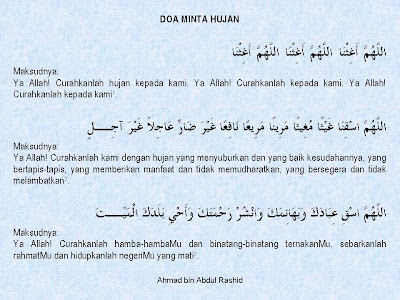 DOA MINTA HUJAN
اللَّهُمَّ أَغِثْنَا اللَّهُمَّ أَغِثْنَا اللَّهُمَّ أَغِثْنَا
Maksudnya:
Ya Allah! Curahkanlah hujan kepada kami. Ya Allah! Curahkanlah kepada kami. Ya Allah!
Curahkanlah kepada kami¹.
اللَّهُمَّ اسْقِنَا غَيْثًا مُغِيثًا مَرِيئًا مَرِيعًا نَافِعًا غَيْرَ ضَارٍّ عَاجِلاً غَيْرَ آجِـــلٍ
Maksudnya:
Ya Allah! Curahkanlah kami dengan hujan yang menyuburkan dan yang baik kesudahannya, yang
bertapis-tapis, yang memberikan manfaat dan tidak memudharatkan, yang bersegera dan tidak
melambatkan².
اللَّهُمَّ اسْقِ عِبَادَكَ وَبَهَائِمَكَ وَانْشُرْ رَحْمَتَكَ وَأَحْيِ بَلَدَكَ الْمَيِّـــت
Maksudnya:
Ya Allah! Curahkanlah hamba-hambaMu dan binatang-binatang ternakanMu, sebarkanlah
rahmatMu dan hidupkanlah negeriMu yang mati³.
Ahmad bin Abdul Rashid